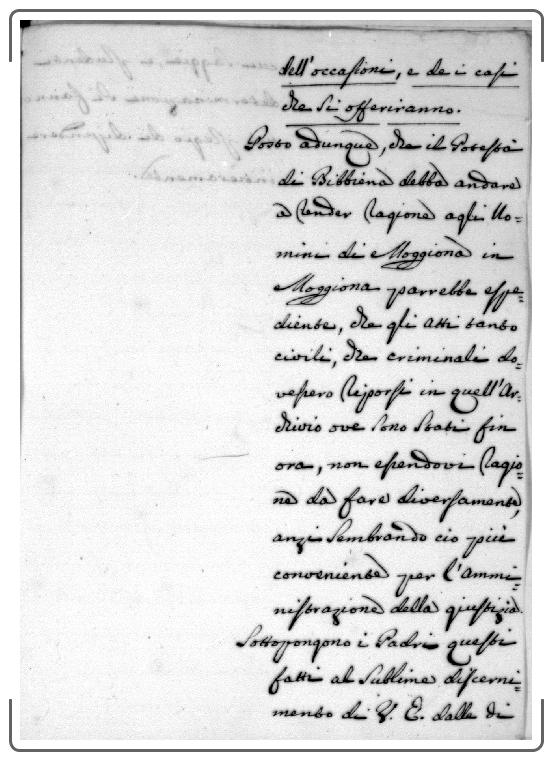 dell'occasioni, e de i casi
che si offeriranno.
Posto adunque, che il Potestà
di Bibbiena debba andare
à render ragione agli Uo=
mini di Moggiona in
Moggiona parrebbe espe=
diente, che gli atti tanto
civili, che criminali do=
vessero riporsi in quell'Ar=
chivio ove sono stati fin
ora, non essendovi ragio=
ne da fare diversamente,
anzi sembrando cio più
conveniente per l'ammi=
nistrazione della giustizia.
Sottopongono i Padri questi
fatti al sublime discerni=
mento di V. E. dalle di